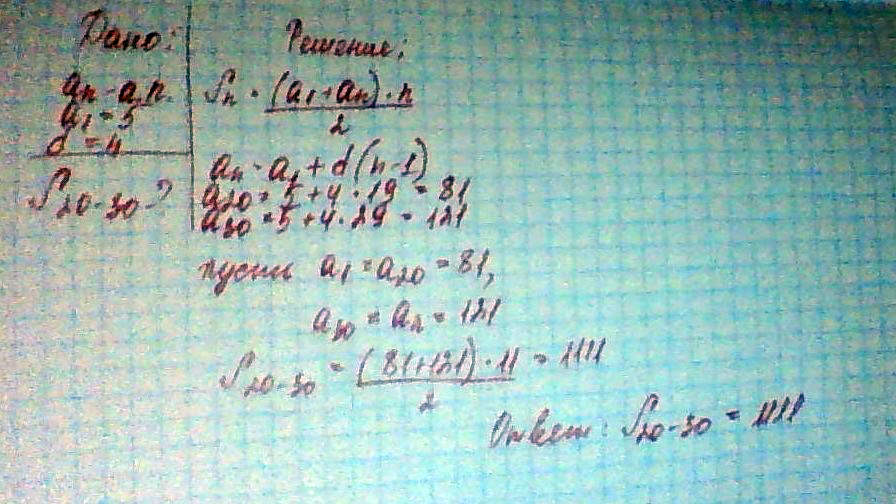 Дано:
aₙ - а.п.
a₁ = 5
d = 4
S₂₀₋₃₀ - ?
Решение:
Sₙ = (a₁ + aₙ) · n / 2
aₙ = a₁ + d(n-1)
a₂₀ = 5 + 4 · 19 = 81
a₃₀ = 5 + 4 · 29 = 121
пусть a₁ = a₂₀ = 81,
a₃₀ = aₙ = 121
S₂₀₋₃₀ = (81+121) · 11 / 2 = 1111
Ответ: S₂₀₋₃₀ = 1111